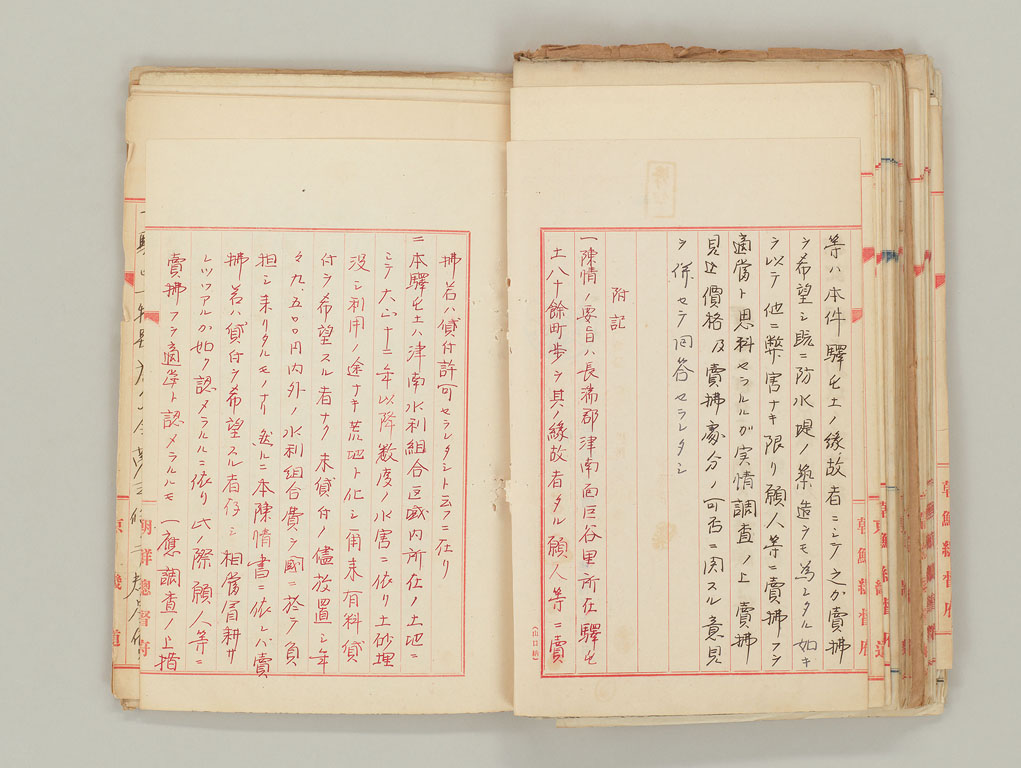 等ハ本件驛土ノ縁故者ニシテ之カ賣拂
ヲ希望シ既ニ防水堤ノ築造ヲモ為シタル如キ
ヲ以テ他ニ弊害ナキ限リ願人等ニ賣拂フヲ
適當ト思料セラルルガ実情調査ノ上賣拂
見込價格及賣拂處分ノ可否ニ関スル意見
ヲ併セテ回答セラレタシ
附記
一陳情ノ要旨ハ長湍郡津南面巨谷里所在驛
土八十餘町歩ヲ其ノ縁故者タル願人等ニ賣
拂若ハ貸付許可セラレタシト云フニ在リ
二本驛土ハ津南水利組合区域内所在ノ土地ニ
シテ大正十二年以降数度ノ水害ニ依リ土砂埋
没シ利用ノ途ナキ荒地ト化シ爾来有料貸
付ヲ希望スル者ナク未貸付ノ儘放置シ年
々九、五〇〇円内外ノ水利組合費ヲ國ニ於テ負
担シ来リタルモノナリ然ルニ本陳情書ニ依レバ賣
拂若ハ貸付ヲ希望スル者存シ相當冒耕サ
レツツアルカ如ク認メラルルニ依リ此ノ際願人等ニ
賣拂フヲ適當ト認メラルルモ一應調査ノ上措
朝鮮總督府
京畿道
(山口納)